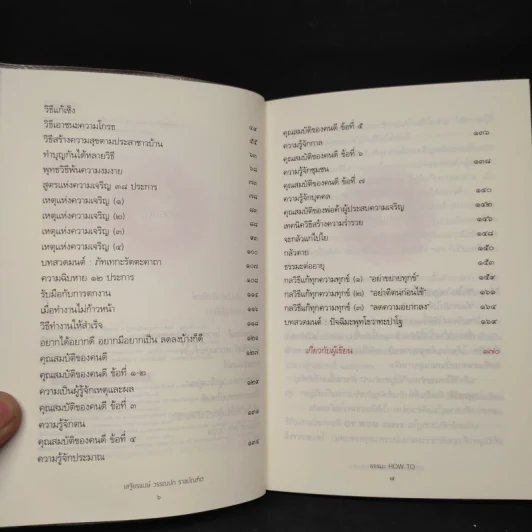 วิธีแก้เซ็ง
วิธีเอาชนะความโกรธ
วิธีสร้างความสุขตามประสาชาวบ้าน ๕๕
ทำบุญกันได้หลายวิธี ๖๓
พุทธวิธีพ้นความงมงาย ๖๘
สูตรแห่งความเจริญ ๓๘ ประการ ๗๒
เหตุแห่งความเจริญ (๑) ๗๘
เหตุแห่งความเจริญ (๒)
เหตุแห่งความเจริญ (๓)
เหตุแห่งความเจริญ (๔) ๑๐๑
บทสวดมนต์ : ภัทเทกะรัตตะคาถา ๑๐๗
ความฉิบหาย ๑๒ ประการ
รับมือกับการตกงาน ๑๑๔
เมื่อทำงานไม่ก้าวหน้า
วิธีทำงานให้สำเร็จ ๑๑๘
อยากได้อยากดี อยากมีอยากเป็น ลดลงบ้างก็ดี
คุณสมบัติของคนดี ๑๒๗
คุณสมบัติของคนดี ข้อที่ ๑-๒
ความเป็นผู้รู้จักเหตุและผล ๑๒๙
คุณสมบัติของคนดี ข้อที่ ๓
ความรู้จักตน
คุณสมบัติของคนดี ข้อที่ ๔ ๑๓๔
ความรู้จักประมาณ
เสฐียรพงษ์ วรรณปก ราชบัณฑิต
๖
คุณสมบัติของคนดี ข้อที่ ๕ ๑๓๖
ความรู้จักกาล
คุณสมบัติของคนดี ข้อที่ ๖ ๑๓๘
ความรู้จักชุมชน
คุณสมบัติของคนดี ข้อที่ ๗ ๑๔๐
ความรู้จักบุคคล
คุณสมบัติของพ่อค้าผู้ประสบความเจริญ ๑๔๒
เทคนิควิธีสร้างความร่ำรวย ๑๔๖
จะกลัวแก่ไปใย ๑๔๘
กลัวตาย ๑๕๐
ธรรมะต่ออายุ ๑๕๓
กลวิธีแก้ทุกความทุกข์ (๑) "อย่าขยายทุกข์" ๑๕๙
กลวิธีแก้ทุกความทุกข์ (๒) "อย่าตีตนก่อนไข้" ๑๖๑
กลวิธีแก้ทุกความทุกข์ (๓) "ลดความอยากลง" ๑๖๔
บทสวดมนต์ : ปัจฉิมะพุทโธวาทะปาโฐ ๑๖๙
เกี่ยวกับผู้เขียน ๑๗๐
ธรรมะ HOW TO
๗